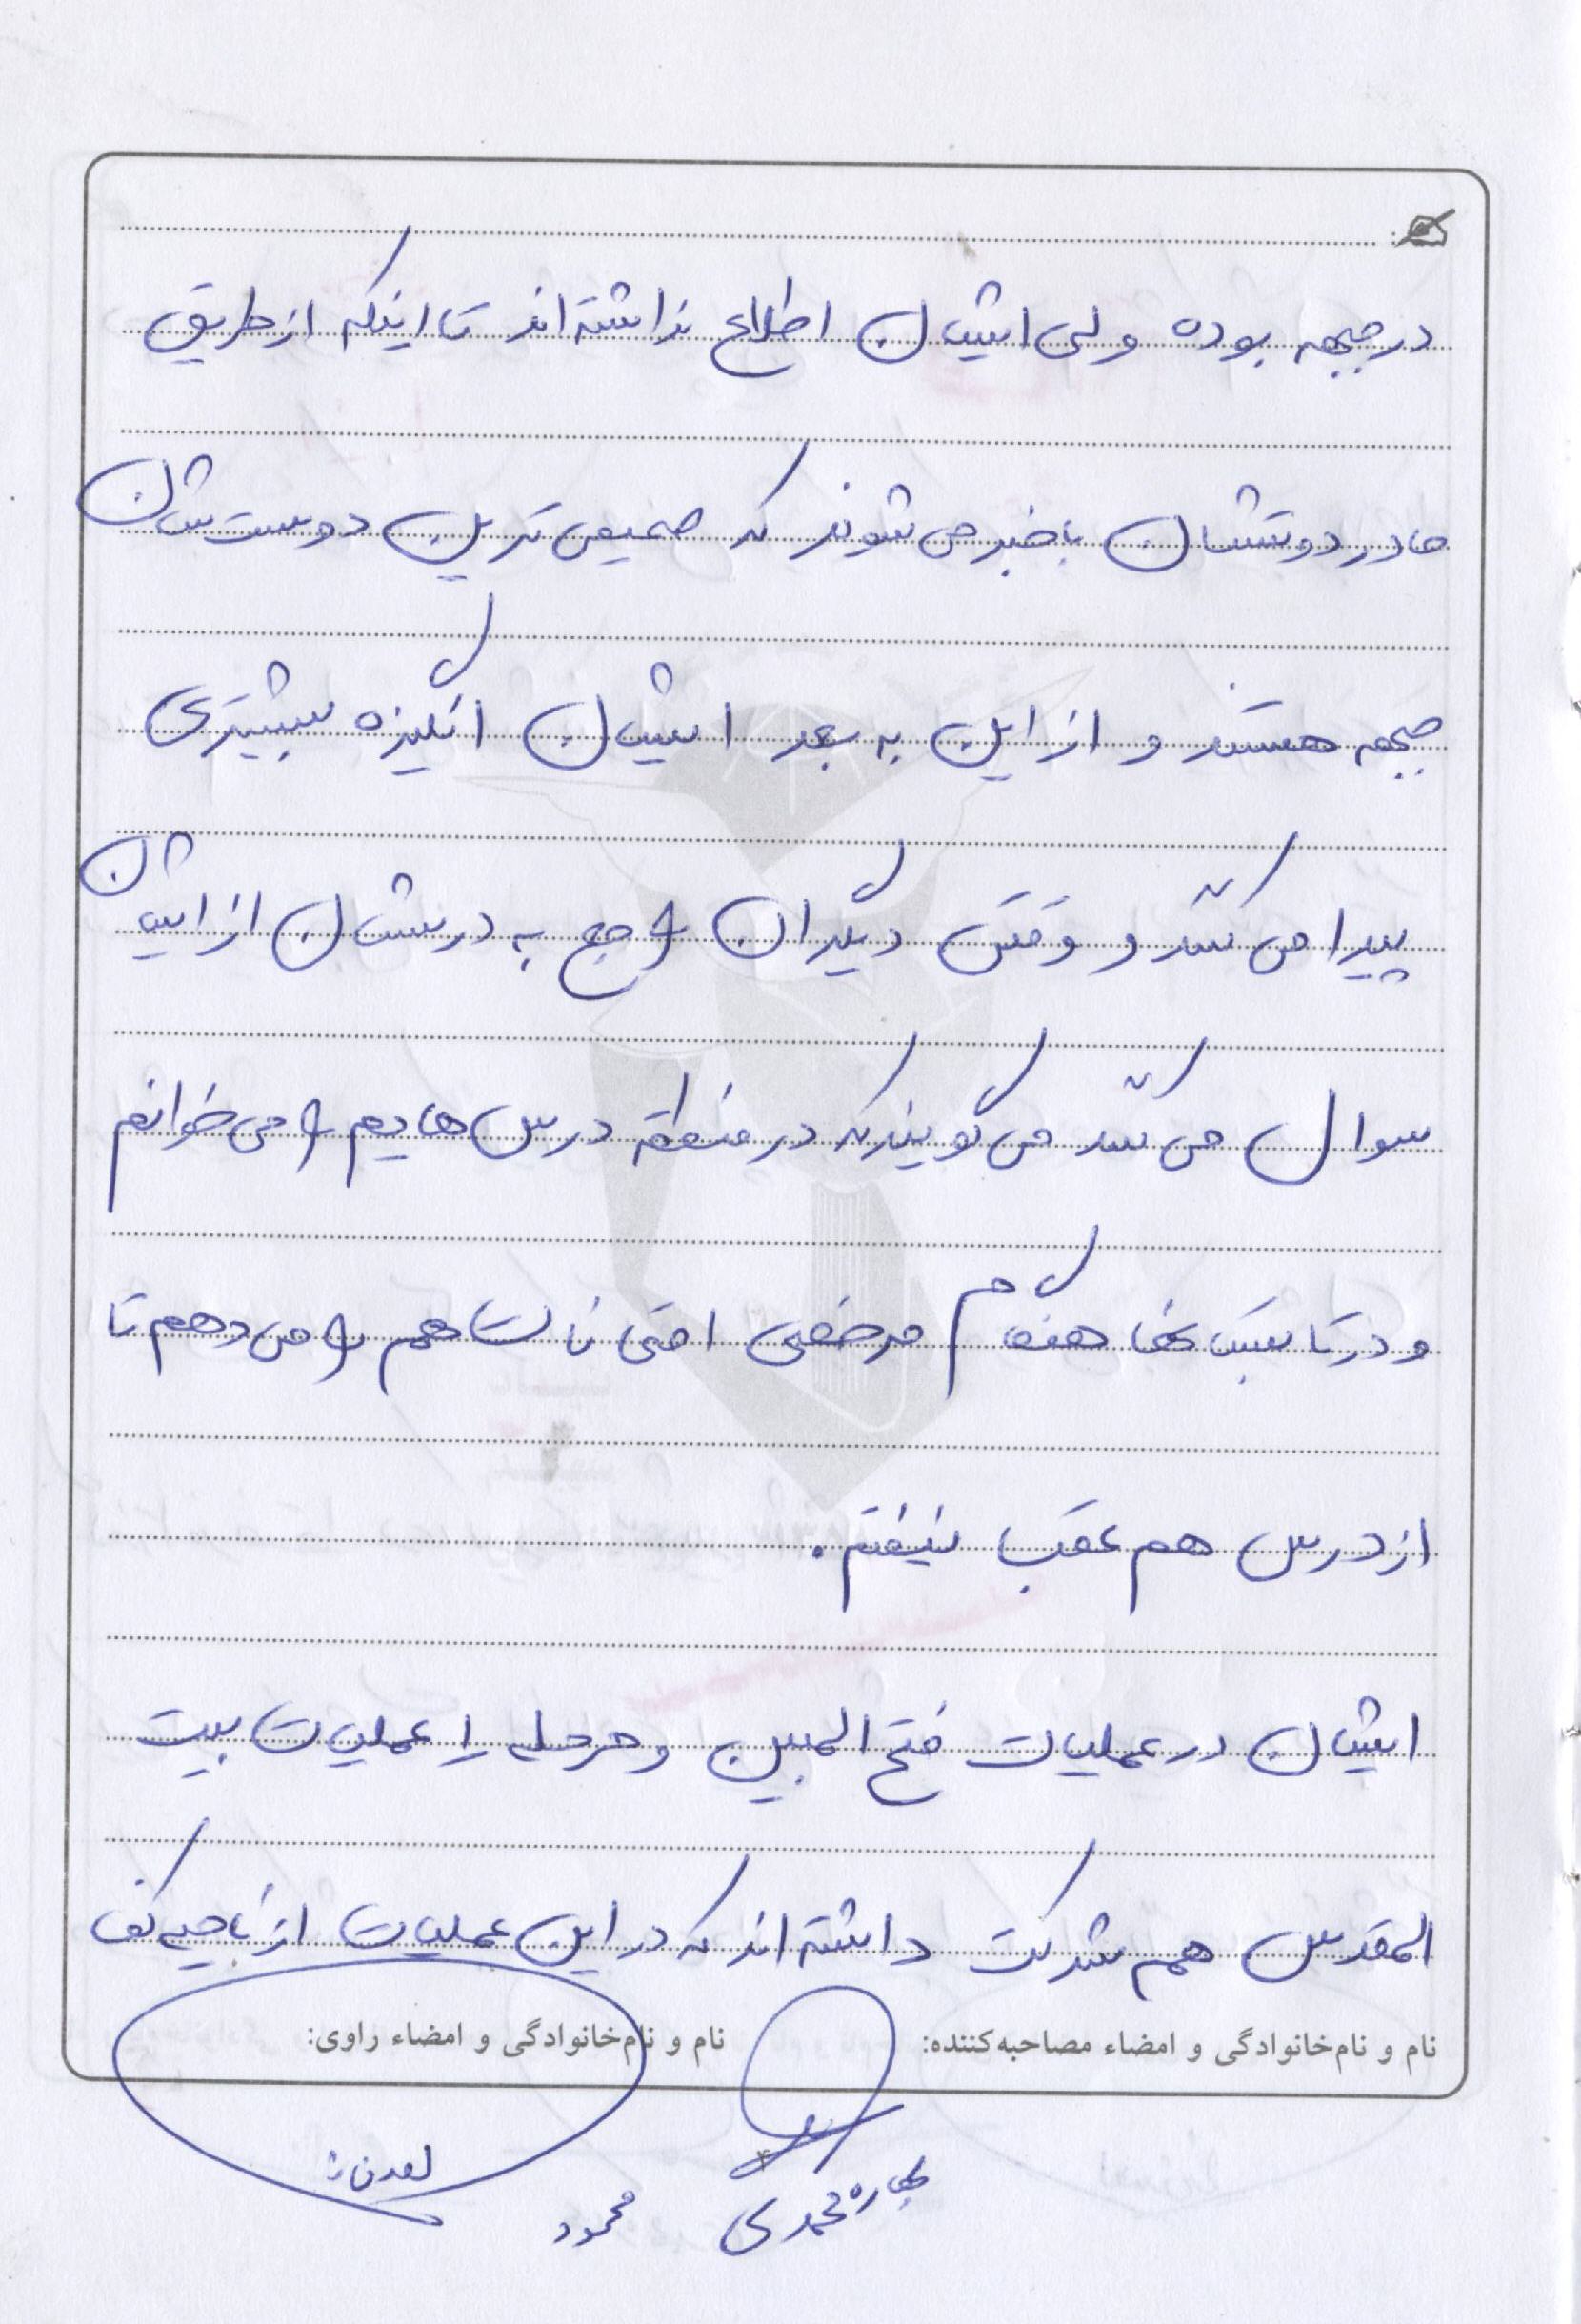 در جبهه بوده ولی ایشان اطلاع نداشته اند تا اینکه از طریق
مادر دوستشان باخبر می شوند که صمیمی ترین دوست شان
جبهه هستند و از این به بعد ایشان انگیزه بیشتری
پیدا می کنند و وقتی دیگران راجع به درسشان از ایشان
سوال می کنند می گویند که در منطقه درس هایم را می خوانم
و در تابستان ها هنگام مرخصی امتحانات هم را می دهم تا
از درس هم عقب نیفتم.
ایشان در عملیات فتح المبین و مرحله ۱ عملیات بیت
المقدس هم شرکت داشته اند که در این عملیات از ناحیه کتف
نام و نام‌خانوادگی و امضاء مصاحبه‌کننده: نام و نام‌خانوادگی و امضاء راوی:
بهاره محمدی محمود